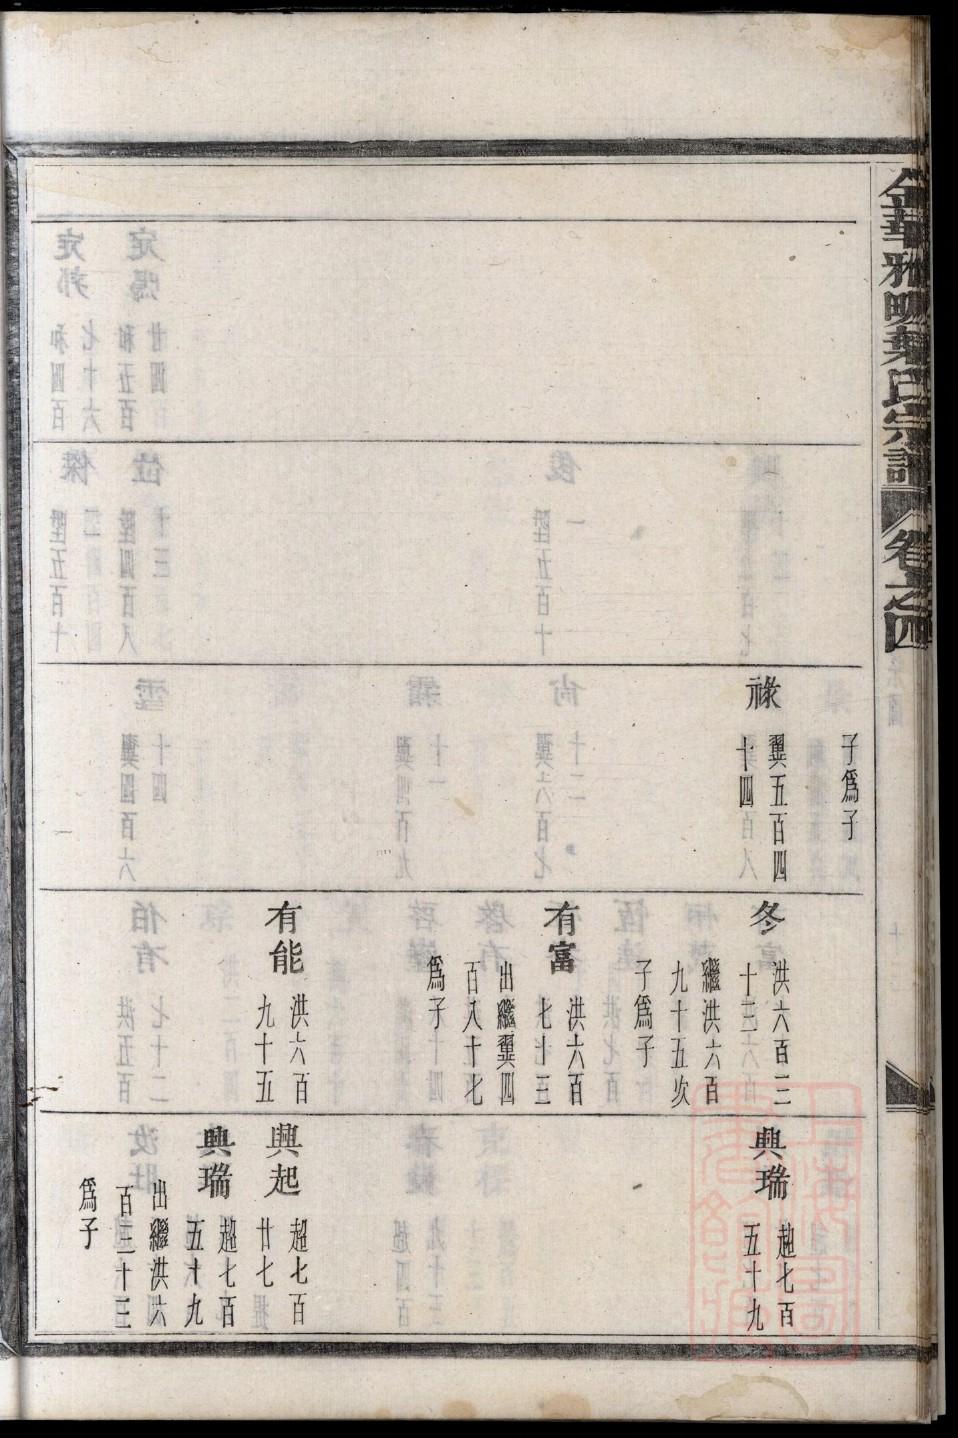 金華雅畈葉氏宗譜 卷之四
子爲子
祿 翼五百四
十四
冬 洪六百三
十三
繼洪六百
九十五次
子爲子
有富 洪六百
七十三
出繼翼四
百八十七
爲子
有能 洪六百
九十五
興瑞 趄七百
五十九
興起 超七百
廿七
興瑞 超七百
五十九
出繼洪六
百三十三
爲子